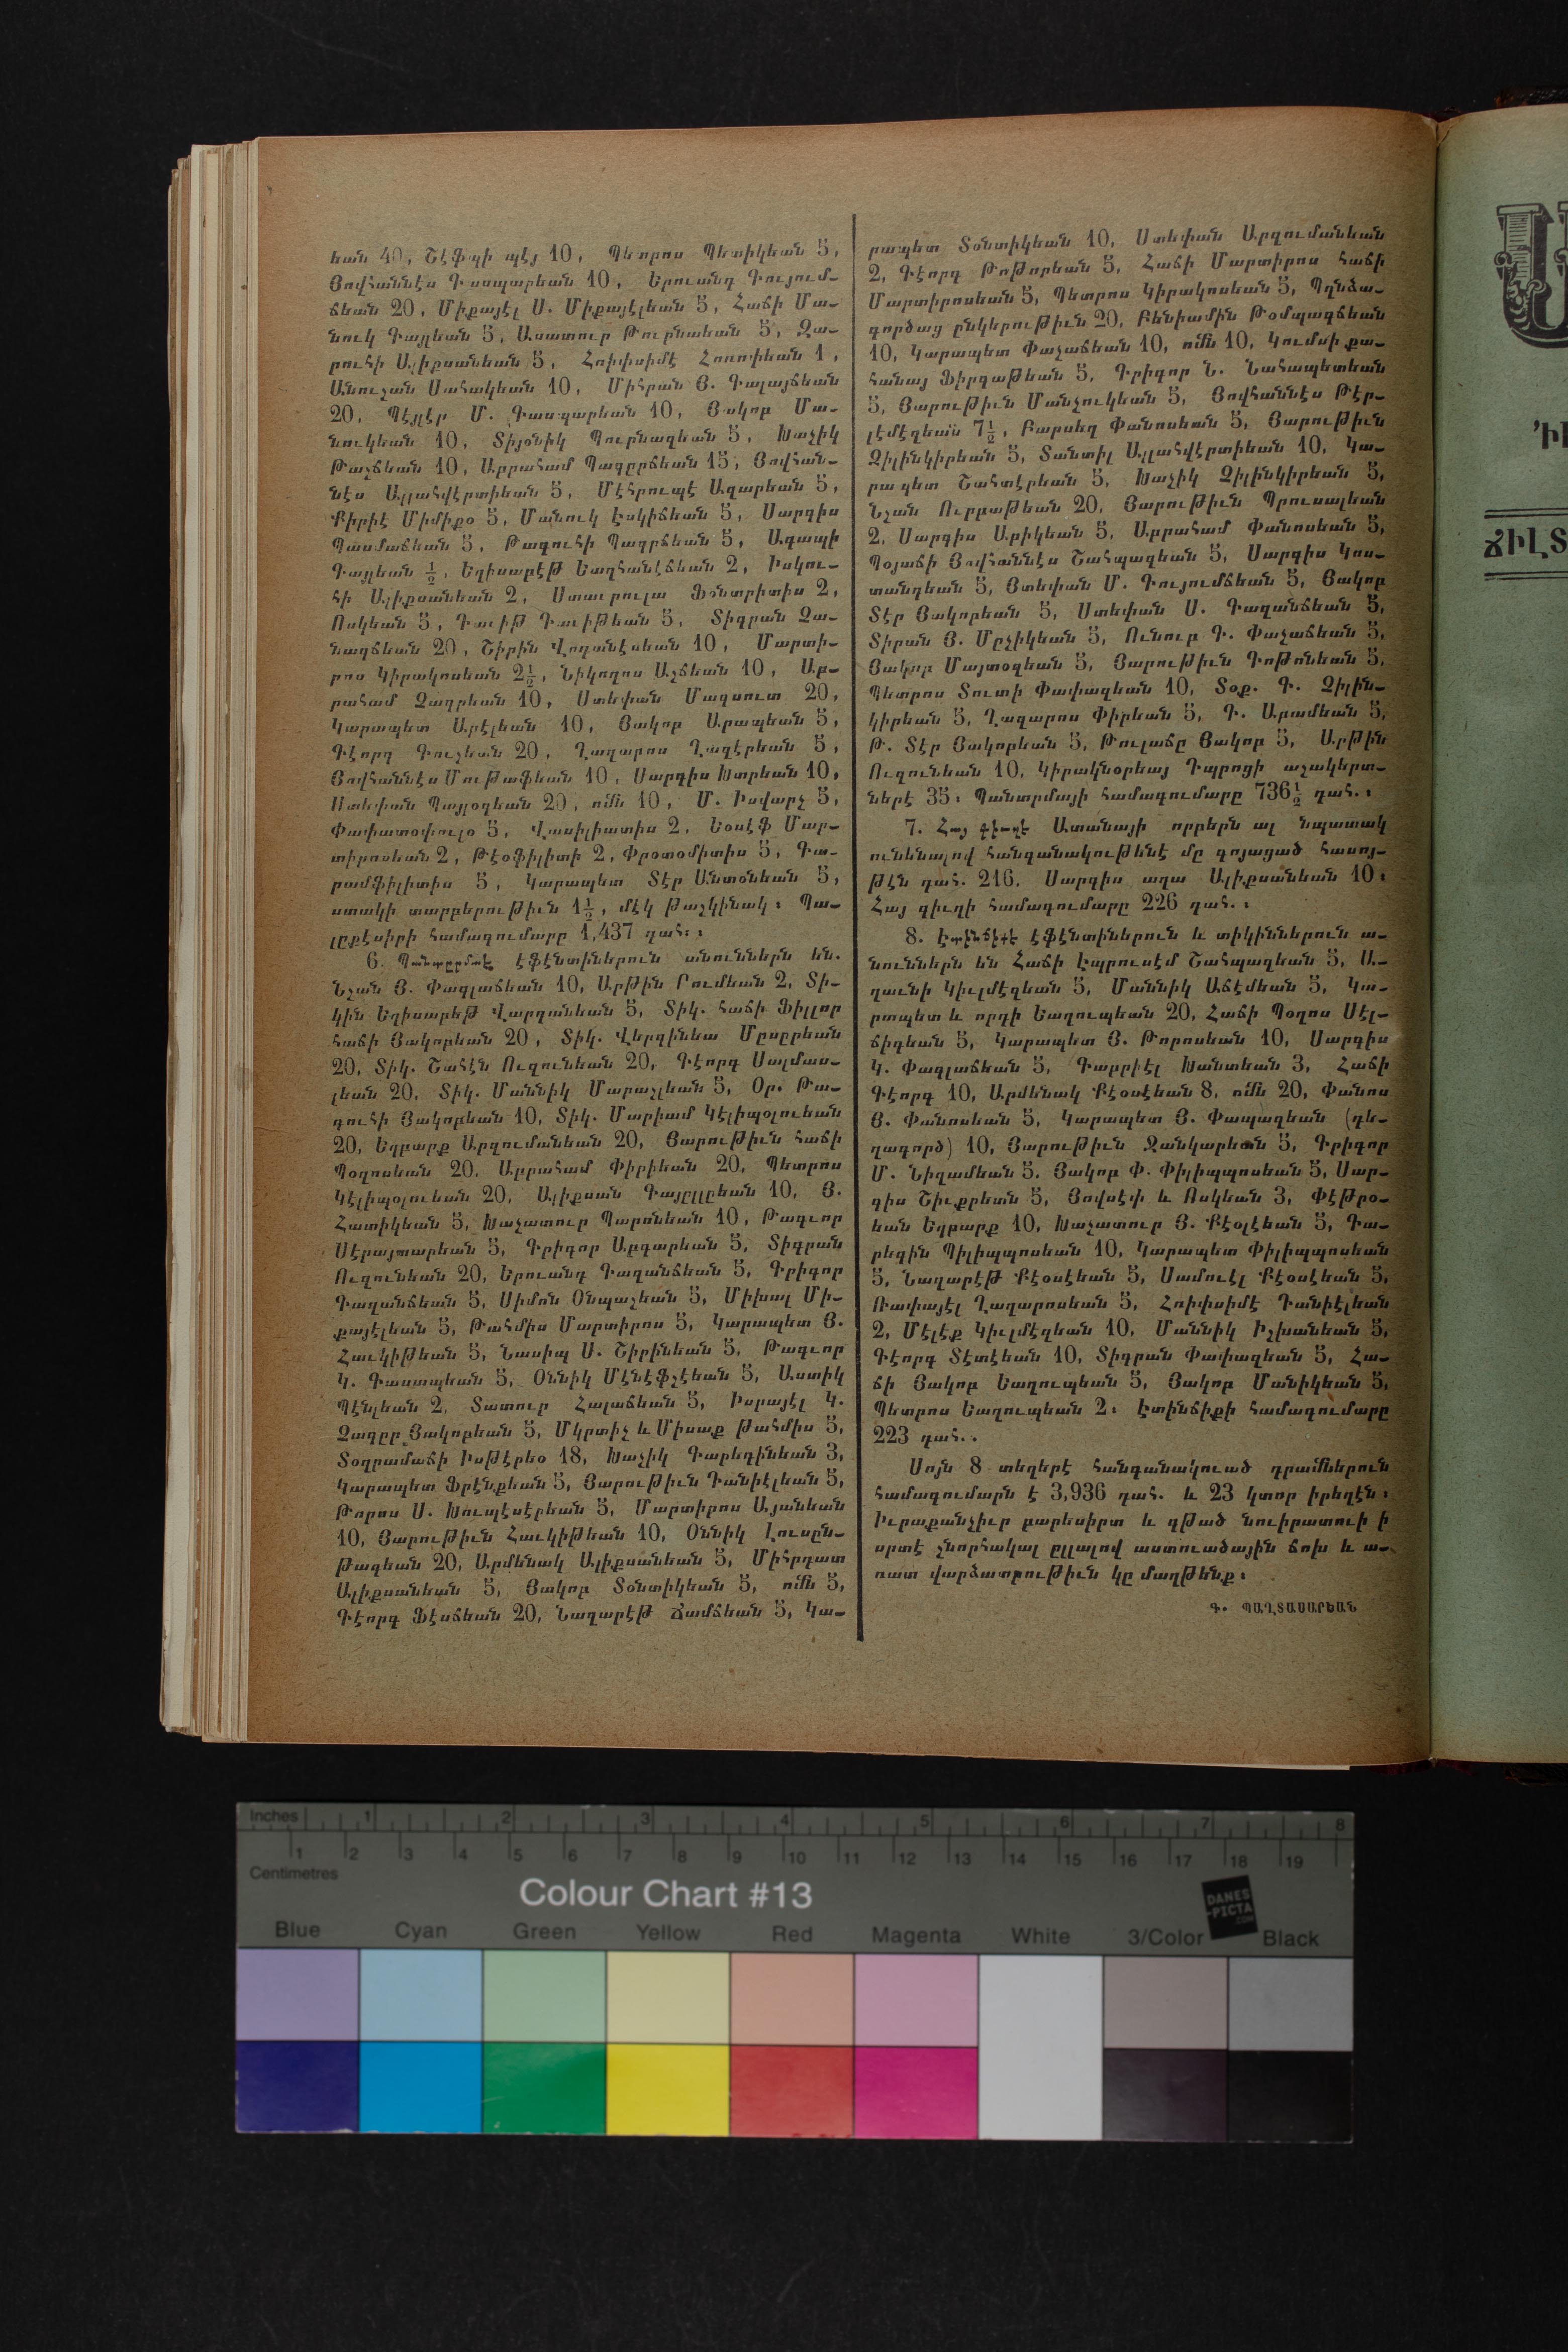 եան 40, Շէֆգի պէյ 10, Պետրոս Պետիկեան 5,
Յովհաննէս Գասպարեան 10, Երուանդ Գույում-
ճեան 20, Միքայէլ Ս. Միքայէլեան 5, Հաճի Մա-
նուկ Գայլեան 5, Ասատուր Թուրնաեան 5, Զա-
րուհի Ալիքսանեան 5, Հռիփսիմէ Հոռոփեան 1,
Անուշան Սահակեան 10, Միհրան Յ. Գալայճեան
20, Պէյլէր Մ. Գասպարեան 10, Յակոբ Մա-
նուկեան 10, Տիյօնիկ Պուրնազեան 5, Խաչիկ
Թաշճեան 10, Աբրահամ Պագըրճեան 15, Յովհան-
նէս Ալլահվէրտիեան 5, Մէհրուպէ Ազարեան 5,
Քիրիէ Միմիքօ 5, Մանուկ Էսկիճեան 5, Սարգիս
Պասմաճեան 5, Թագուհի Պագրճեան 5, Ագապի
Գայլեան ½, Եղիսաբէթ Եաղհանէճեան 2, Իսկու-
հի Ալիքսանեան 2, Ստաւրուլա Ֆօնտրիտիս 2,
Ոսկեան 5, Դաւիթ Դաւիթեան 5, Տիգրան Զա-
նազճեան 20, Շիրին Վողանէսեան 10, Մարտի-
րոս Կիրակոսեան 2½, Նիկողոս Աչճեան 10, Աբ-
րահամ Չաղրեան 10, Ստեփան Մագսուտ 20,
Կարապետ Աբէլեան 10, Յակոբ Արապեան 5,
Գէորգ Գուշեան 20, Ղազարոս Ղազէրեան 5,
Յովհաննէս Մութաֆեան 10, Սարգիս Խտրեան 10,
Ստեփան Պայլօզեան 20, ոմն 10, Մ. Իսվարչ 5,
Փափատօփուլօ 5, Վասիլիատիս 2, Եօսէֆ Մար-
տիրոսեան 2, Թէօֆիլիտի 2, Փրօտօմիտիս 5, Գա-
րամֆիլիտիս 5, Կարապետ Տէր Անտօնեան 5,
ստակի տարբերութիւն 1½, մէկ թաշկինակ։ Պա-
լըքէսիրի համագումարը 1,437 դահ.։
6. Պանտըրմայէ էֆէնտիներուն անուններն են.
Նշան Յ. Փագլաճեան 10, Արթին Րումեան 2, Տի-
կին Եղիսաբեթ Վարդանեան 5, Տիկ. հաճի Ֆիլլոր
հաճի Յակոբեան 20, Տիկ. Վերգինեա Մըսըրեան
20, Տիկ. Շահէն Ուզունեան 20, Գէորգ Սալմաս-
լեան 20, Տիկ. Մաննիկ Մարաշլեան 5, Օր. Թա-
գուհի Յակոբեան 10, Տիկ. Մարիամ Կէլիպօլուեան
20, Եղբարք Արզումանեան 20, Յարութիւն հաճի
Պօղոսեան 20, Աբրահամ Փիրիեան 20, Պետրոս
Կէլիպօլուեան 20, Ալիքսան Գայըլլըեան 10, Յ.
Հատիկեան 5, Խաչատուր Պարոնեան 10, Թագւոր
Սէրայտարեան 5, Գրիգոր Աբգարեան 5, Տիգրան
Ուզունեան 20, Երուանդ Գազանճեան 5, Գրիգոր
Գազանճեան 5, Սիմոն Օնպաշեան 5, Միխալ Մի-
քայէլեան 5, Թահմիս Մարտիրոս 5, Կարապետ Յ.
Հաւկիթեան 5, Նասիպ Ս. Շիրինեան 5, Թագւոր
Կ. Գասապեան 5, Օննիկ Մէնէֆշէեան 5, Աստիկ
Պէնլեան 2, Տատուր Հալաճեան 5, Իսրայէլ Կ.
Չագըր Յակոբեան 5, Մկրտիչ և Միսաք Թահմիս 5,
Տօղրամաճի Իսթէրեօ 18, Խաչիկ Գարեգինեան 3,
Կարապետ Ֆրէնքեան 5, Յարութիւն Դանիէլեան 5,
Թորոս Ս. Խուպէսէրեան 5, Մարտիրոս Այանեան
10, Յարութիւն Հաւկիթեան 10, Օննիկ Լուսըն-
թագեան 20, Արմենակ Ալիքսանեան 5, Միհրդատ
Ալիքսանեան 5, Յակոբ Տօնտիկեան 5, ոմն 5,
Գէորգ Ֆէսճեան 20, Նաղարէթ Ճամճեան 5, Կա-
րապետ Տօնտիկեան 10, Ստեփան Արզումանեան
2, Գէորգ Թոթորեան 5, Հաճի Մարտիրոս հաճի
Մարտիրոսեան 5, Պետրոս Կիրակոսեան 5, Պղնձա-
գործաց ընկերութիւն 20, Բենիամին Թօմպագճեան
10, Կարապետ Փաչաճեան 10, ոմն 10, Կումսի քա-
հանայ Ֆիրզաթեան 5, Գրիգոր Ն. Նահապետեան
5, Յարութիւն Մանչուկեան 5, Յովհաննէս Թէր-
լէմէզեան 7½, Բարսեղ Փանոսեան 5, Յարութիւն
Չիլինկիրեան 5, Տանտիլ Ալլահվէրտիեան 10, Կա-
րապետ Շահտէրեան 5, Խաչիկ Չիլինկիրեան 5,
Նշան Ուրբաթեան 20, Յարութիւն Պրուսալեան
2, Սարգիս Աբիկեան 5, Աբրահամ Փանոսեան 5,
Պօյաճի Յովհաննէս Շահպազեան 5, Սարգիս Կոս-
տանդեան 5, Ստեփան Մ. Գույումճեան 5, Յակոբ
Տէր Յակոբեան 5, Ստեփան Ս. Գազանճեան 5,
Տիրան Յ. Մըշիկեան 5, Ունուր Գ. Փաչաճեան 5,
Յակոբ Մայտօզեան 5, Յարութիւն Գոթոնեան 5,
Պետրոս Տուտի Փափազեան 10, Տօք. Գ. Չիլին-
կիրեան 5, Ղազարոս Փիրեան 5, Գ. Արամեան 5,
Թ. Տէր Յակոբեան 5, Թուլաճը Յակոբ 5, Արթին
Ուզունեան 10, Կիրակնօրեայ Դպրոցի աշակերտ-
ներէ 35։ Պանտրմայի համագումարը 736½ դահ.։
7. Հայ գիւղէ Ատանայի որբերն ալ նպատակ
ունենալով հանգանակութենէ մը գոյացած հասոյ-
թէն դահ. 216. Սարգիս աղա Ալիքսանեան 10։
Հայ գիւղի համագումարը 226 դահ.։
8. Էտինճիքէ էֆէնտիներուն և տիկիններուն ա-
նուններն են Հաճի Էպրուսէմ Շահպազեան 5, Ա-
ղաւնի Կիւլմէզեան 5, Մաննիկ Աճէմեան 5, Կա-
րապետ և որդի Եաղուպեան 20, Հաճի Պօղոս Սէլ-
ճիգեան 5, Կարապետ Յ. Թորոսեան 10, Սարգիս
Կ. Փագլաճեան 5, Գաբրիէլ Խանտեան 3, Հաճի
Գէորգ 10, Արմենակ Քէօսէեան 8, ոմն 20, Փանոս
Յ. Փանոսեան 5, Կարապետ Յ. Փապազեան (դե-
ղագործ) 10, Յարութիւն Ջանկարեան 5, Գրիգոր
Մ. Նիզամեան 5, Յակոբ Փ. Փիլիպպոսեան 5, Սար-
գիս Շիւքրեան 5, Յովսէփ և Ոսկեան 3, Փէթրօ-
եան Եղբարք 10, Խաչատուր Յ. Քէօլէեան 5, Գա-
րեգին Պիլիպպոսեան 10, Կարապետ Փիլիպպոսեան
5, Նաղարէթ Քէօսէեան 5, Սամուէլ Քէօսէեան 5,
Ռափայէլ Ղազարոսեան 5, Հռիփսիմէ Դանիէլեան
2, Մէլէք Կիւլմէզեան 10, Մաննիկ Իշխանեան 5,
Գէորգ Տէտէեան 10, Տիգրան Փափազեան 5, Հա-
ճի Յակոբ Եաղուպեան 5, Յակոբ Մանիկեան 5,
Պետրոս Եաղուպեան 2։ Էտինճիքի համագումարը
223 դահ..
Սոյն 8 տեղերէ հանգանակուած դրամներուն
համագումարն է 3,936 դահ. և 23 կտոր իրեղէն։
Իւրաքանչիւր բարեսիրտ և գթած նուիրատուի ի
սրտէ շնորհակալ ըլլալով աստուածային ճոխ և ա-
ռատ վարձատրութիւն կը մաղթենք։
Գ. ՊԱՂՏԱՍԱՐԵԱՆ
Inches 1 2 3 4 5 6 7 8
1 2 3 4 5 6 7 8 9 10 11 12 13 14 15 16 17 18 19
Centimetres
Colour Chart #13
DANES
-PICTA
.COM
Blue Cyan Green Yellow Red Magenta White 3/Color Black
ՃԻԼՏ